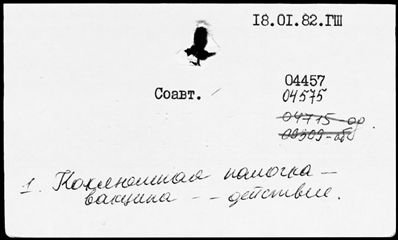 18.01.82.ГШ
04457
Соавт.
04575
04715-
1. Коклюшная палочка —
вакцина - - действие.